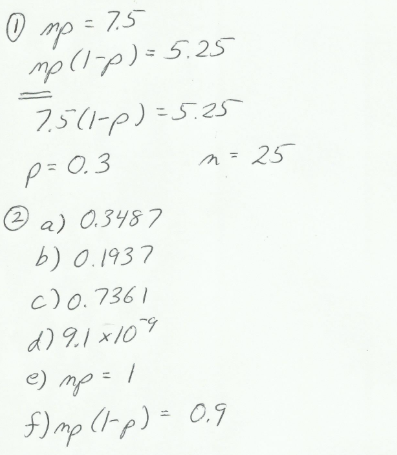 ① np = 7.5
np(1-p) = 5.25
7.5(1-p) = 5.25
p = 0.3 n = 25
② a) 0.3487
b) 0.1937
c) 0.7361
d) 9.1 x 10⁻⁹
e) np = 1
f) np (1-p) = 0.9